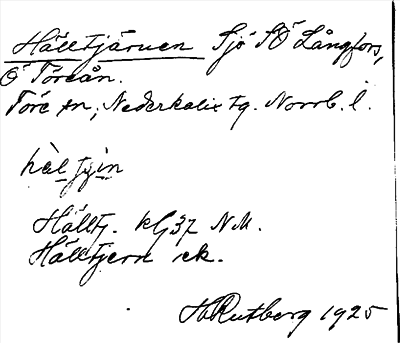 Hälltjärnen Sjö SÖ Långfors,
Ö Töreån.
Töre sn, Nederkalix tg. Norrb. l.
hàltjin
Hälltj. klj 37 N.M.
Hälltjern ek.
H Rutberg 1925